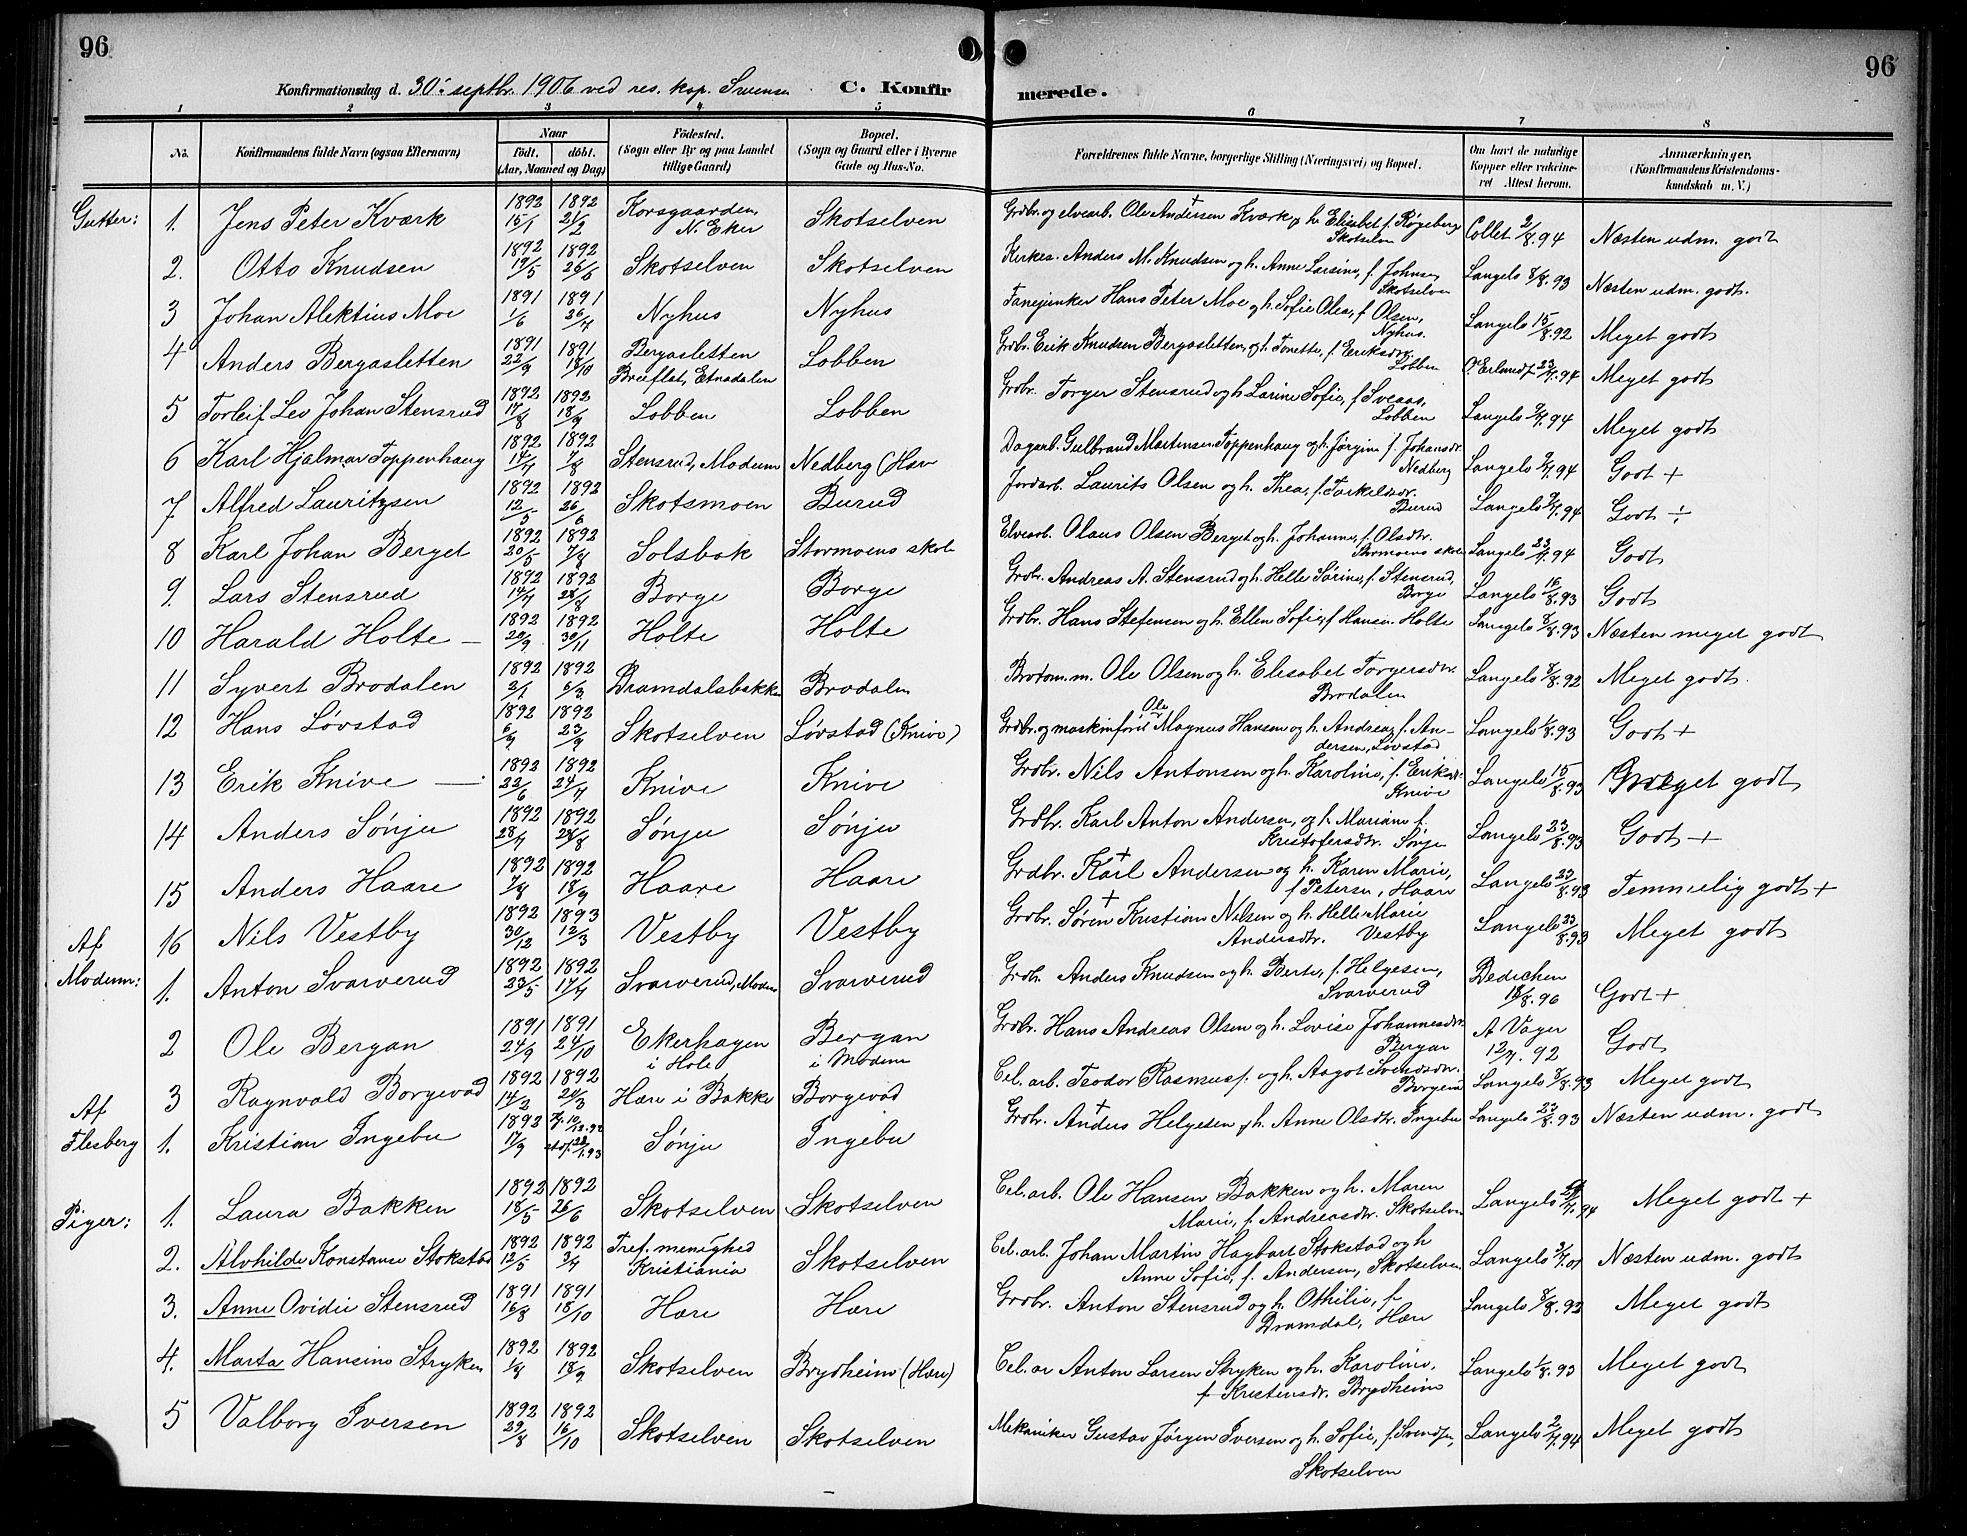 96
96
Konfirmationsdag d. 30. septbr. 1906 ved res. kap. Svensen
C. Konfirmerede.
1 2 3 4 5 6 7 8
No.
Konfirmandens fulde Navn (ogsaa Efternavn)
Naar
født. døbt.
(Aar, Maaned og Dag)
Fødested.
(Sogn eller By og paa Landet
tillige Gaard)
Bopæl.
(Sogn og Gaard eller i Byerne
Gade og Hus-No.
Forældrenes fulde Navne, borgerlige Stilling (Næringsvei) og Bopæl.
Om havt de naturlige
Kopper eller vakcine-
ret Attest herom.
Anmærkninger.
(Konfirmandens Kristendoms-
kundskab m. V.)
Gutter:
1. Jens Peter Kværk 1892 15/1 1892 21/2 Korsgaarden, N. Eker Skotselven Grdbr. og elvearb. Ole Andersen Kværk og h. Elisabet f. Røgeberg Skotselv Collet 2/8.94 Næsten udm. godt
2. Otto Knudsen 1892 19/5 1892 26/6 Skotselven Skotselven Kirkes. Anders M. Knudsen og h. Anne Larsine, f. Johnsen, Skotselven Langels 8/8.93 Næsten udm. godt.
3 Johan Alektius Moe 1891 1/6 1891 26/7 Nyhus Nyhus Fanejunker Hans Peter Moe og h. Sofie Olea, f. Olsen, Nyhus. Langels 15/8.92 Meget godt
4 Anders Bergasletten 1891 22/9 1891 18/10 Bergasletten Breiflat, Etnadalen Lobben Grdbr. Erik Knudsen Bergasletten, og h. Tonette, f. Eriksdtr. Lobben 94 Meget godt
5 Torleif Lev Johan Stensrud 1892 17/8 1892 18/9 Lobben Lobben Grdbr. Torger Stensrud og h. Larine Sofie, f. Sveaas, Lobben Langels 94 Meget godt
6 Karl Hjalmar Toppenhaug 1892 14/7 1892 7/8 Stensrud, Modum Nedberg (Hær Dagarb. Gulbrand Martinsen Toppenhaug og h. Jørgine f. Johansdr. Nedberg Langels 94 Godt +
7 Alfred Lauritzsen 1892 12/5 1892 26/6 Skotsmoen Burud Jordarb. Laurits Olsen og h. Thea, f. Torkelsdr. Burud Langels 94 Godt ÷
8 Karl Johan Berget 1892 20/5 1892 7/8 Solsbak Stormoens skole Elvearb. Olaus Olsen Berget og h. Johanne, f. Olsdtr. Stormoens skole Langels 23/7.94 Godt
9. Lars Stensrud 1892 14/7 1892 28/8 Borge Borge Grdbr. Andreas A. Stensrud og h. Helle Sørine, f. Stensrud, Borge Langels 16/8.93 Godt
10 Harald Holte 1892 20/9 1892 30/11 Holte Holte Grdbr. Hans Stefensen og h. Ellen Sofie, f. Hansen Holte Langels 8/8.93 Næsten meget godt
11 Syvert Brodalen 1892 2/1 1892 6/3 Dramdalsbakken Brodalen Brotom. m. Ole Olsen og h. Elisabet Torgersdtr. Brodalen Langels 8/8.92 Meget godt.
12 Hans Løvstad 1892 6/9 1892 23/9 Skotselven Løvstad (Knive) Grdbr. og maskinfører Ole Magnus Hansen og h. Andrea, f. Andersen, Løvstad Langels 1/8.93 Godt +
13 Erik Knive 1892 22/6 1892 24/7 Knive Knive Grdbr. Nils Antonsen og h. Karoline, f. Eriksdr. Knive Langels 15/8.93 Meget godt
14 Anders Sønju 1892 28/7 1892 28/8 Sønju Sønju Grdbr. Karl Anton Andersen, og h. Mariane f. Kristofersdtr. Sønju Langels 23/8.93 Godt +
15 Anders Haare 1892 7/8 1892 18/9 Haare Haare Grdbr. Karl Andersen og h. Karen Marie, f. Petersen, Haare Langels 23/8.93 Temmelig godt +
16 Nils Vestby 1892 30/12 1893 12/3 Vestby Vestby Grdbr. Søren Kristian Nilsen og h. Helle Marie Andersdtr. Vestby Langels 23/8.93 Meget godt
Af Modum:
1. Anton Svarverud 1892 23/5 1892 17/7 Svarverud, Modum Svarverud Grdbr. Anders Knudsen og h. Berte, f. Helgesen, Svarverud Dedichen 18/8.96 Godt +
2 Ole Bergan 1891 24/9 1891 24/10 Ekerhagen i Hole Bergan i Modum Grdbr. Hans Andreas Olsen og h. Lovise Johannesdtr. Bergan A Vager 12/7.92 Godt
3 Ragnvald Borgevad 1892 14/2 1892 24/3 Hære i Bakke Borgevad Cel. arb. Teodor Rasmuss. og h. Aagot Svendsdr. Borgevad Langels 8/8.93 Meget godt
Af Flesberg
1. Kristian Ingebu 1892 17/9 Sønju Ingebu Grdbr. Anders Helgesen og h. Anne Olsdtr. Ingebu Langels 23/8.93 Næsten udm. godt
Piger:
1. Laura Bakken 1892 18/5 1892 26/6 Skotselven Skotselven Cel. arb. Ole Hansen Bakken og h. Maren Marie, f. Andreasdtr. Skotselven Langels 94 Meget godt +
2. Alvhilde Konstanse Stokstad 1892 12/5 1892 3/7 Tref. menighed Kristiania Skotselven Cel. arb. Johan Martin Hagbart Stokstad og h Anne Sofie, f. Andersen, Skotselven Langels 01 Næsten udm. godt
3. Anne Ovidie Stensrud 1891 16/8 1891 18/10 Hære Hære Grdbr. Anton Stensrud og h. Othilie, f. Dramdal, Hære Langels 8/8.93 Meget godt
4. Marta Hansine Stryken 1892 1/8 1892 18/9 Skotselven Brydheim (Hære) Cel. ar Anton Larsen Stryken og h. Karoline, f. Kristensdr. Brydheim Langels 1/8.93 Meget godt
5 Valborg Iversen 1892 29/8 1892 16/10 Skotselven Skotselven Mekaniker Gustav Jørgen Iversen og h. Sofie, f. Svendsen, Skotselven Langels 2/7.94 Meget godt